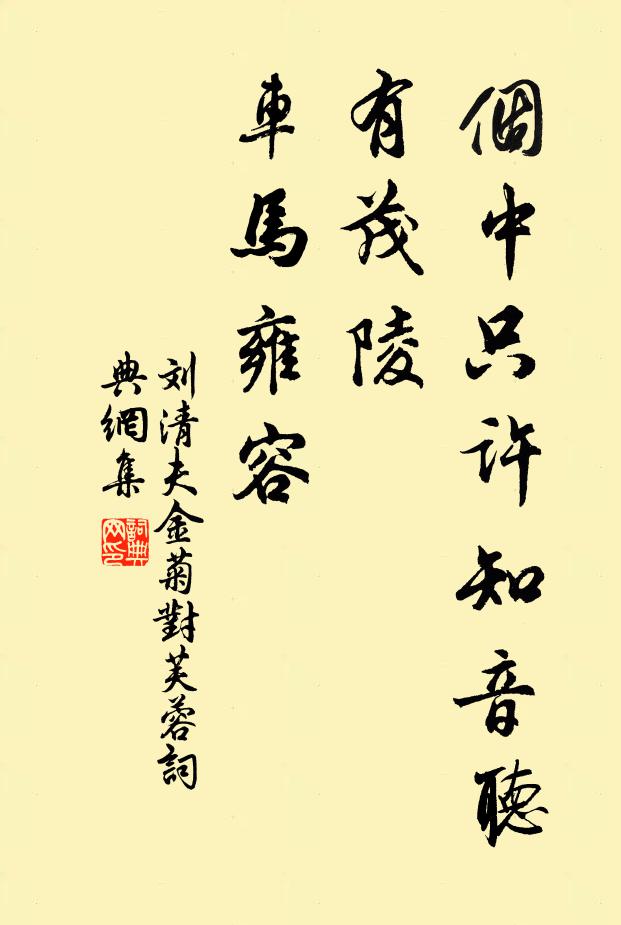 個中只許知音聽
有茂陵
車馬雍容
刘清夫金菊對芙蓉詞
典網集
詞典網印